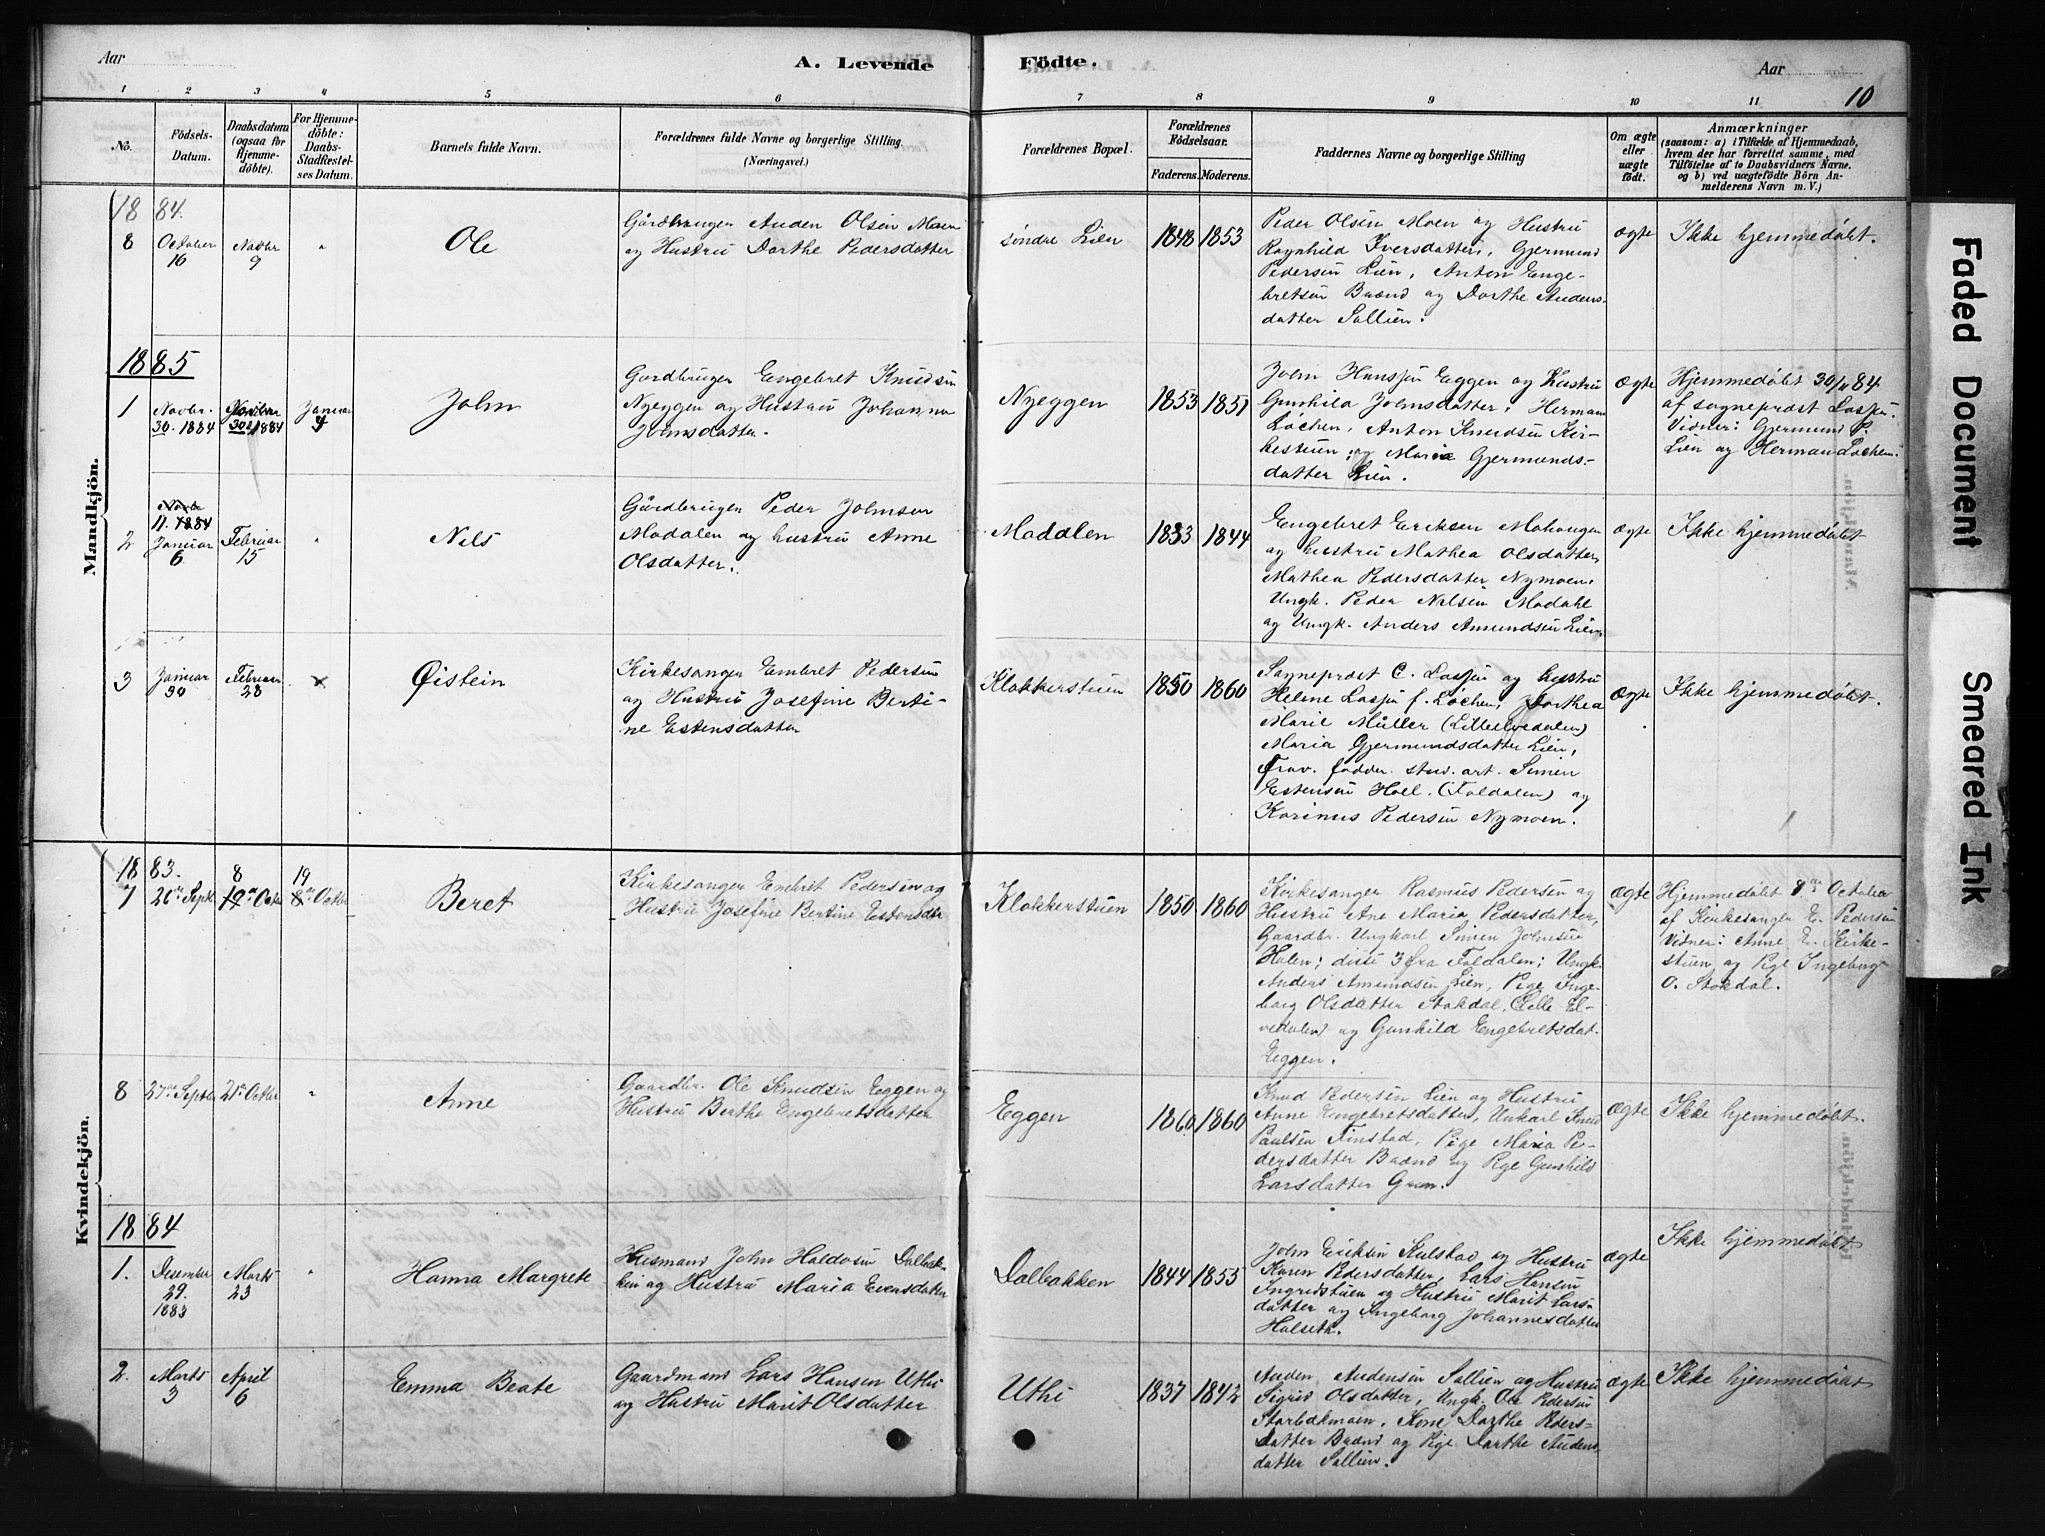 Aar
A. Levende
Födte.
Aar
10
1
2
3
4
5
6
7
8
9
10
11
No.
Födsels-
Datum.
Daabsdatum
(ogsaa for
Hjemme-
döbte).
For Hjemme-
döbte:
Daabs-
Stadfæstel-
ses Datum.
Barnets fulde Navn.
Forældrenes fulde Navne og borgerlige Stilling
(Næringsvei.)
Forældrenes Bopæl.
Forældrenes
Födselsaar.
Faderens.
Moderens.
Faddernes Navne og borgerlige Stilling
Om ægte
eller
uægte
födt.
Anmærkninger
(saasom: a) i Tilfælde af Hjemmedaab,
hvem der har forrettet samme, med
Tilföielse af to Daabsvidners Navne,
og b) ved uægtefödte Börn An-
melderens Navn m. V.)
Mandkjön.
1884.
8
October
16
Novbr
9
"
Ole
Gårdbruger Auden Olsen Moen
og Hustru Dorthe Pedersdatter
søndre Lien
1848
1853
Peder Olsen Moen og Hustru
Ragnhild Iversdatter, Gjermund
Pedersen Lien, Anton Enge-
bretsen Brænd og Dorthe Audens-
datter Sollien.
ægte
Ikke hjemmedøbt.
1885
1
Novbr.
30. 1884
Novbr
30 1884
Januar
John
Gårdbruger Engebret Knudsen
Nyeggen og Hustru Johanna
Johnsdatter.
Nyeggen
1853
1851
John Hansen Eggen og Hustru
Gunhild Johnsdatter, Herman
Løchen, Anton Knudsen Kir-
kestuen, og Maria Gjermunds-
datter Lien.
ægte
Hjemmedøbt 30/11 84
af sogneprest Lassen.
Vidner: Gjermund P.
Lien og Herman Løchen.
2
Novbr
11. 1884
Januar
6
Februar
15
"
Nils
Gårdbruger Peder Johnsen
Modalen og hustru Anne
Olsdatter.
Modalen
1833
1844
Engebret Eriksen Mohaugen
og hustru Mathea Olsdatter,
Mathea Pedersdatter Nymoen,
Ungk. Peder Nilsen Modahl
og Ungk. Anders Amundsen Lien.
ægte
Ikke hjemmedøbt
3
Januar
30
Februar
23
Øistein
Kirkesanger Embret Pedersen
og Hustru Josefine Berti-
ne Estensdatter
Klokkerstuen
1850
1860
Sogneprest C. Lassen og hustru
Helene Lassen f. Løchen, Dorthea
Marie Müller (Lilleelvedalen)
Maria Gjermundsdatter Lien,
Frav. fadder. stud. art. Simen
Estensen Holl. (Foldalen) og
Karinus Pedersen Nymoen.
ægte
Ikke hjemmedøbt.
Kvindekjön.
1883.
7
26de Septbr
8
19de Octbr
19
8de Octbr
Beret
Kirkesanger Embret Pedersen og
Hustru Josefine Bertine Estensdtr
Klokkerstuen
1850
1860
Kirkesanger Rasmus Pedersen og
Hustru Ane Maria Pedersdatter,
Gaardbr. Ungkarl Simen Johnsen
Holen; disse 3 fra Foldalen; Ungk.
Anders Amundsen Lien, Pige Inge-
borg Olsdatter Stokdal, (Lille El-
vedalen) og Gunhild Engebretsdat.
Eggen.
ægte
Hjemmedøbt 8de October
af Kirkesanger E. Pedersen
Vidner: Anne E. Kirke-
stuen og Pige Ingeborg
O. Stokdal.
8
27de Septbr
21de Octbr
"
Anne
Gaardbr. Ole Knudsen Eggen og
Hustru Berthe Engebretsdatter
Eggen
1860
1860
Knud Pedersen Lien og Hustru
Anne Engebretsdatter, Unkarl Knud
Paulsen Finstad, Pige Maria Pe-
dersdatter Brænd og Pige Gunhild
Larsdatter
ægte
Ikke hjemmedøbt.
1884
1.
Desember
29.
1883
Marts
23
"
Hanna Margrete
Husmand John Haldosen Dalbak-
ken og Hustru Maria Evensdatter
Dalbakken
1844
1855
John Eriksen Kulstad og Hustru
Karen Pedersdatter, Lars Hansen
Ingridstuen og Hustru Marit Lars-
datter og Ingeborg Johannesdatter
Halseth.
ægte
Ikke hjemmedøbt
2.
Marts
3
April
6
Emma Beate
Gaardmand Lars Hansen Uthi
og Hustru Marit Olsdatter
Uthi
1837
1842
Auden Audensen Sollien og Hustru
Sigrid Olsdatter, Ungk. Ole Pedersen
Storbækmoen, Kone Dorthe Peders-
datter Brænd og Pige Dorthe Audens
datter Sollien.
ægte
Ikke hjemmedøbt
Faded Document
Smeared Ink